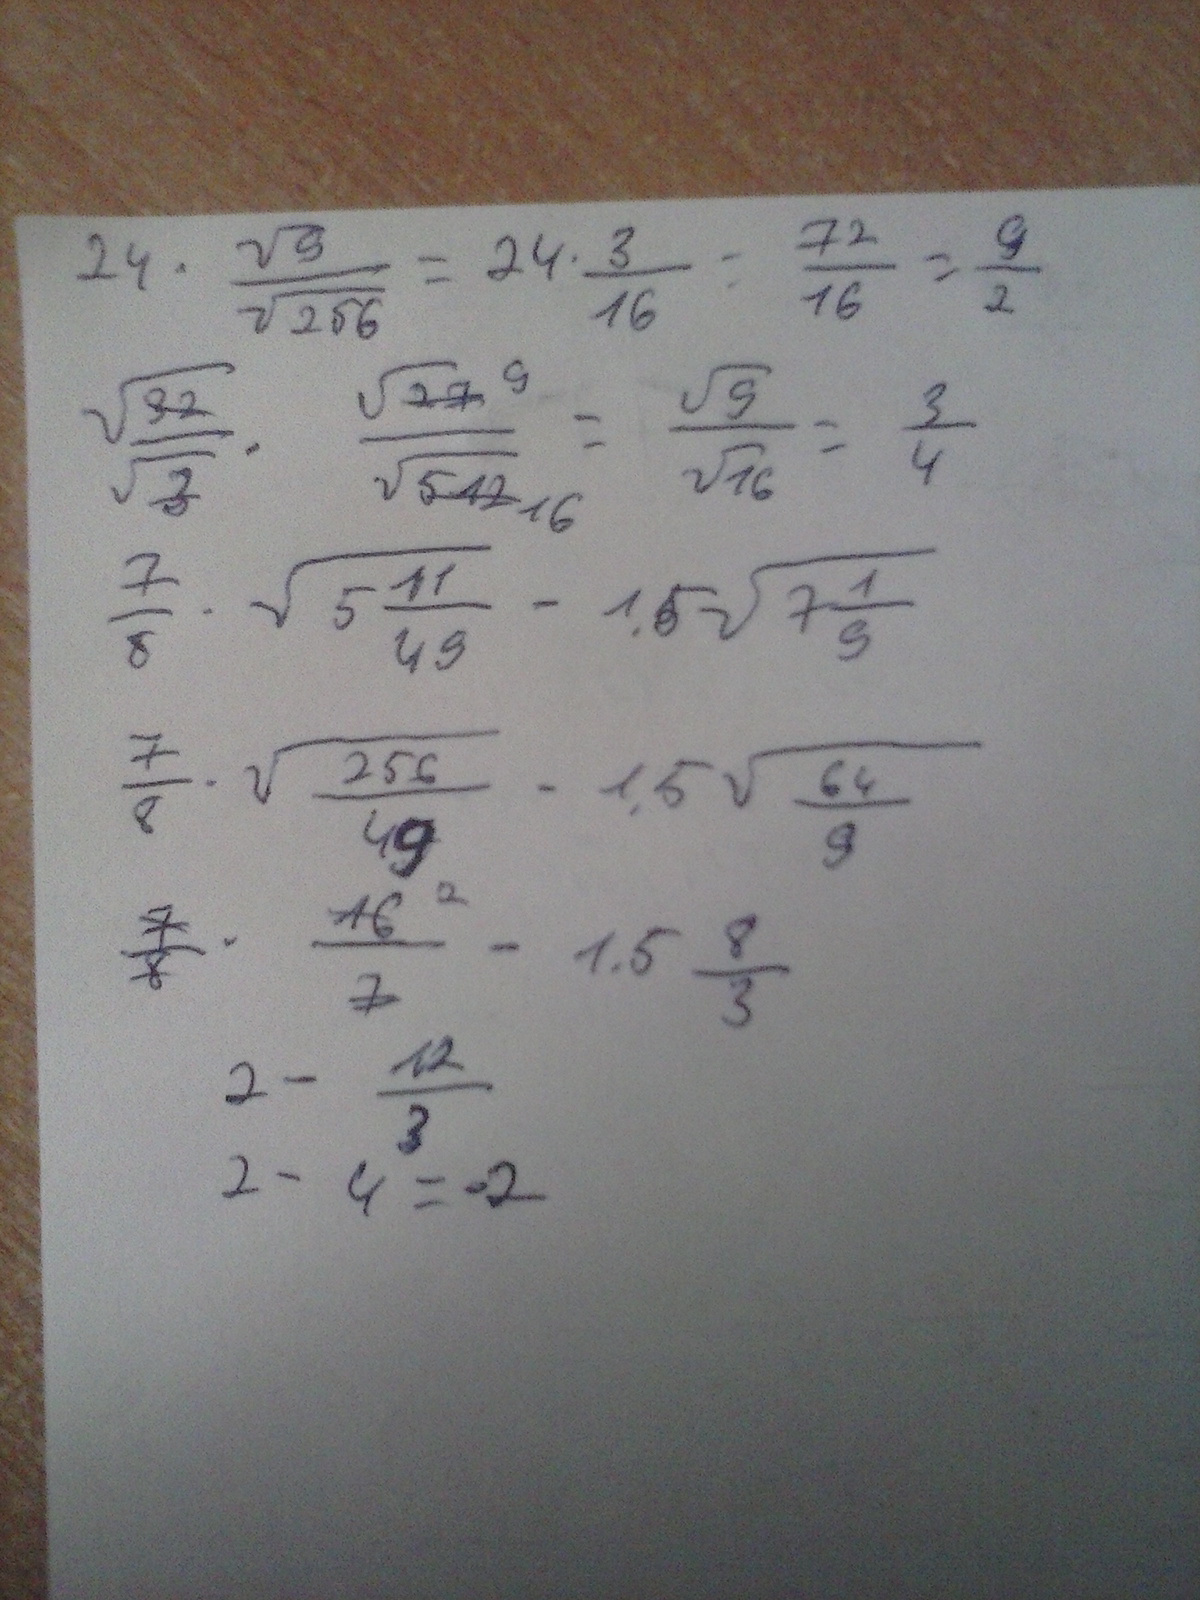 24 · √9/√256 = 24 · 3/16 = 72/16 = 9/2
√32/√3 · √27 9/√512 16 = √9/√16 = 3/4
7/8 · √5 11/49 - 1,5√7 1/9
7/8 · √256/49 - 1,5√64/9
7/8 · 16 2/7 - 1.5 8/3
2 - 12/3
2 - 4 = -2